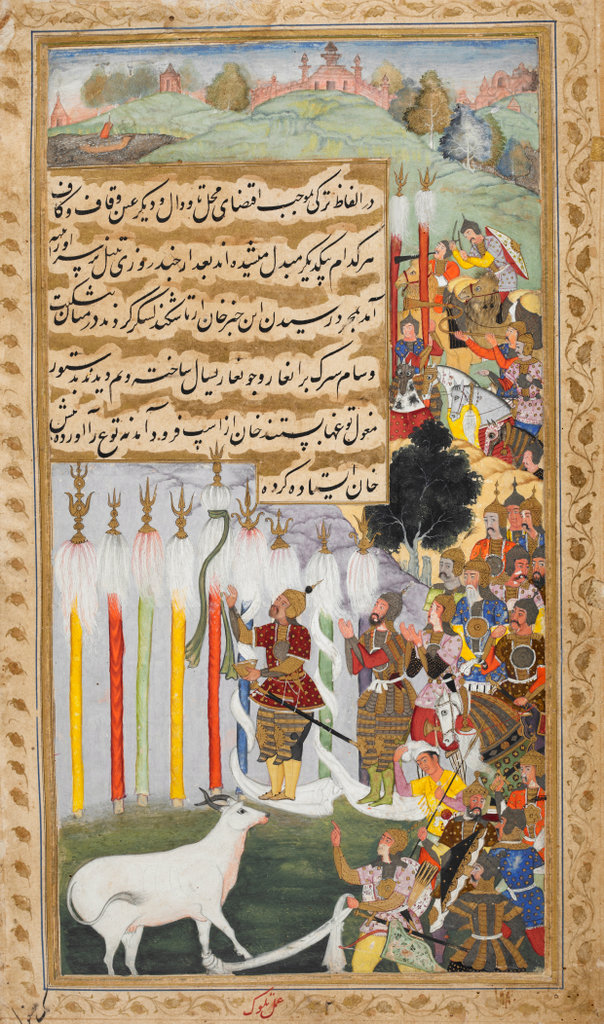 در الفاظ ترکی بموجب اقتضای محل تا و دال و دیگر غین و قاف و کاف
هر کدام بیکدیگر مبدل میشده اند بعد از چند روزی تنبل بر سر اورتیپه
آمد بمجرد رسیدن این خبر خان از تاشکند لشکر کردند در میان بیشکنت
و سام سرک برانغار و جوانغار یسال ساخته ویم دیدند بدستور
مغول توغها بستند خان از اسپ فرود آمد نه توغ را آورده پیش
خان ایستاده کرده
عمل